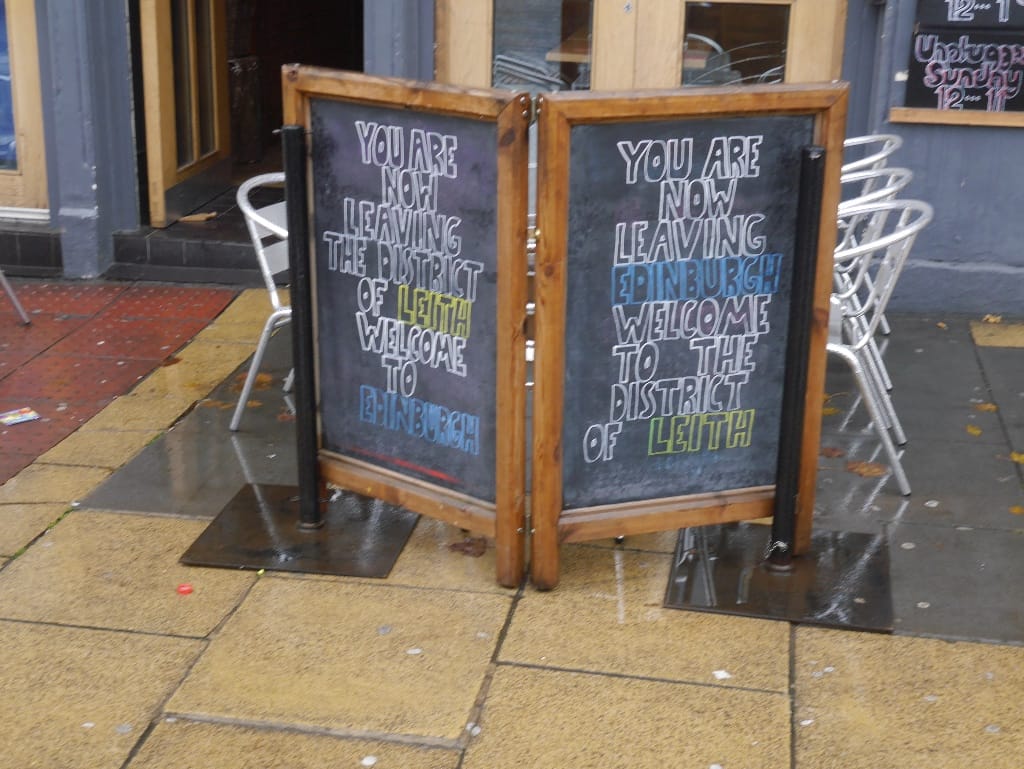 YOU ARE
NOW
LEAVING
THE DISTRICT
OF LEITH
WELCOME
TO
EDINBURGH
YOU ARE
NOW
LEAVING
EDINBURGH
WELCOME
TO THE
DISTRICT
OF LEITH
12...1
Unplugged
Sunday
12...11